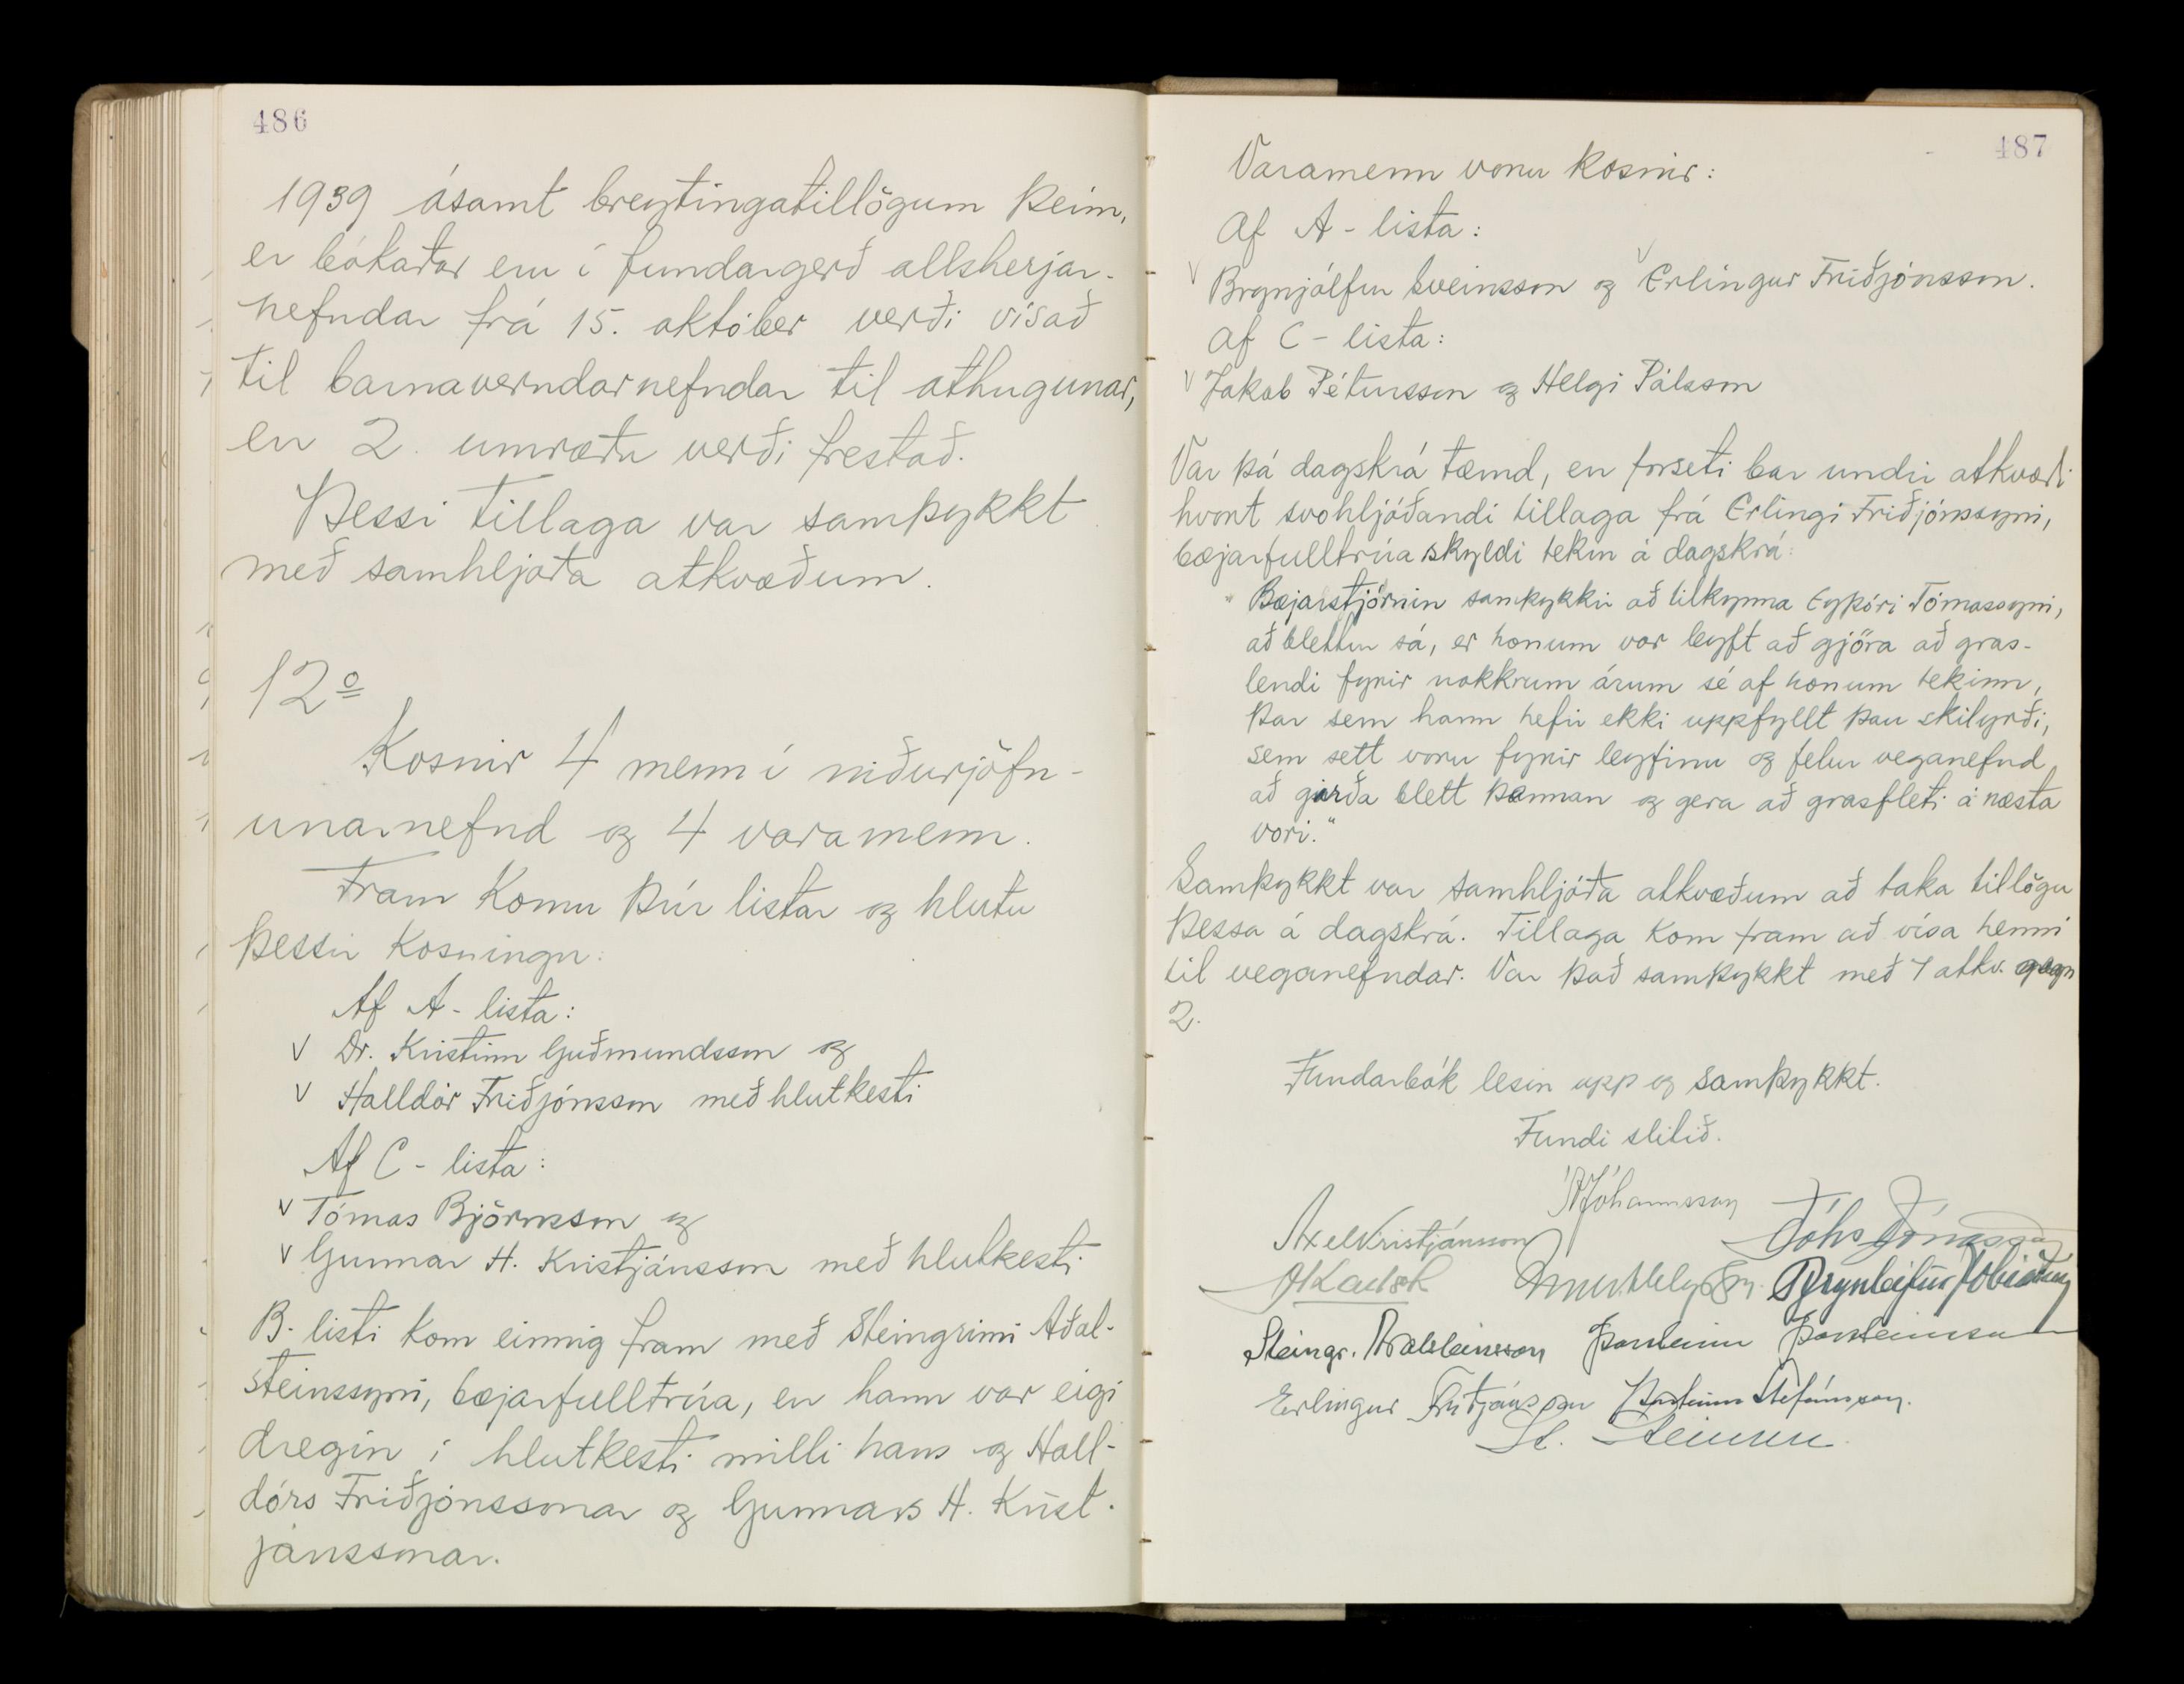 486
1939 ásamt breytingatillögum þeim,
er bókaðar eru í fundargerð allsherjar-
nefndar frá 15. október verði vísað
til barnaverndarnefndar til athugunar,
en 2. umræðu verði frestað.
Þessi tillaga var samþykkt
með samhljóða atkvæðum.
12º
Kosnir 4 menn í niðurjöfn-
unarnefnd og 4 varamenn.
Fram komu þrír listar og hlutu
þessir kosningu:
Af A - lista:
v Dr. Kristinn Guðmundsson og
v Halldór Friðjónsson með hlutkesti
Af C - lista:
v Tómas Björnsson og
v Gunnar H. Kristjánsson með hlutkesti
B- listi kom einnig fram með Steingrími Aðal-
steinssyni, bæjarfulltrúa, en hann var eigi
dregin í hlutkesti milli hans og Hall-
dórs Friðjónssonar og Gunnars H. Krist-
jánssonar.
487
Varamenn voru kosnir:
Af A - lista:
v Brynjólfur Sveinsson og v Erlingur Friðjónsson.
Af C - lista:
v Jakob Pétursson og Helgi Pálsson
Var þá dagskrá tæmd, en forseti bar undir atkvæði
hvort svohljóðandi tillaga frá Erlingi Friðjónssyni,
bæjarfulltrúa skyldi tekin á dagskrá:
"Bæjarstjórnin samþykkir að tilkynna Eyþóri Tómassyni,
að blettur sá, er honum var leyft að gjöra að gras-
lendi fyrir nokkrum árum sé af honum tekinn,
þar sem hann hefir ekki uppfyllt þau skilyrði,
sem sett voru fyrir leyfinu og felur veganefnd
að girða blett þennan og gera að grasfleti á næsta
vori."
Samþykkt var samhljóða atkvæðum að taka tillögu
þessa á dagskrá. Tillaga kom fram að vísa henni
til veganefndar. Var það samþykkt með 7 atkv. gegn
2.
Fundarbók lesin upp og samþykkt.
Fundi slitið.
Jóhannsson
Axel Kristjánsson Jóhs Jónasson
Brynleifur Tobiasson
Steingr. Aðalsteinsson Þorsteinn Þorsteinsson
Erlingur Friðjónsson Þorsteinn Stefánsson.
St. Steinsen.